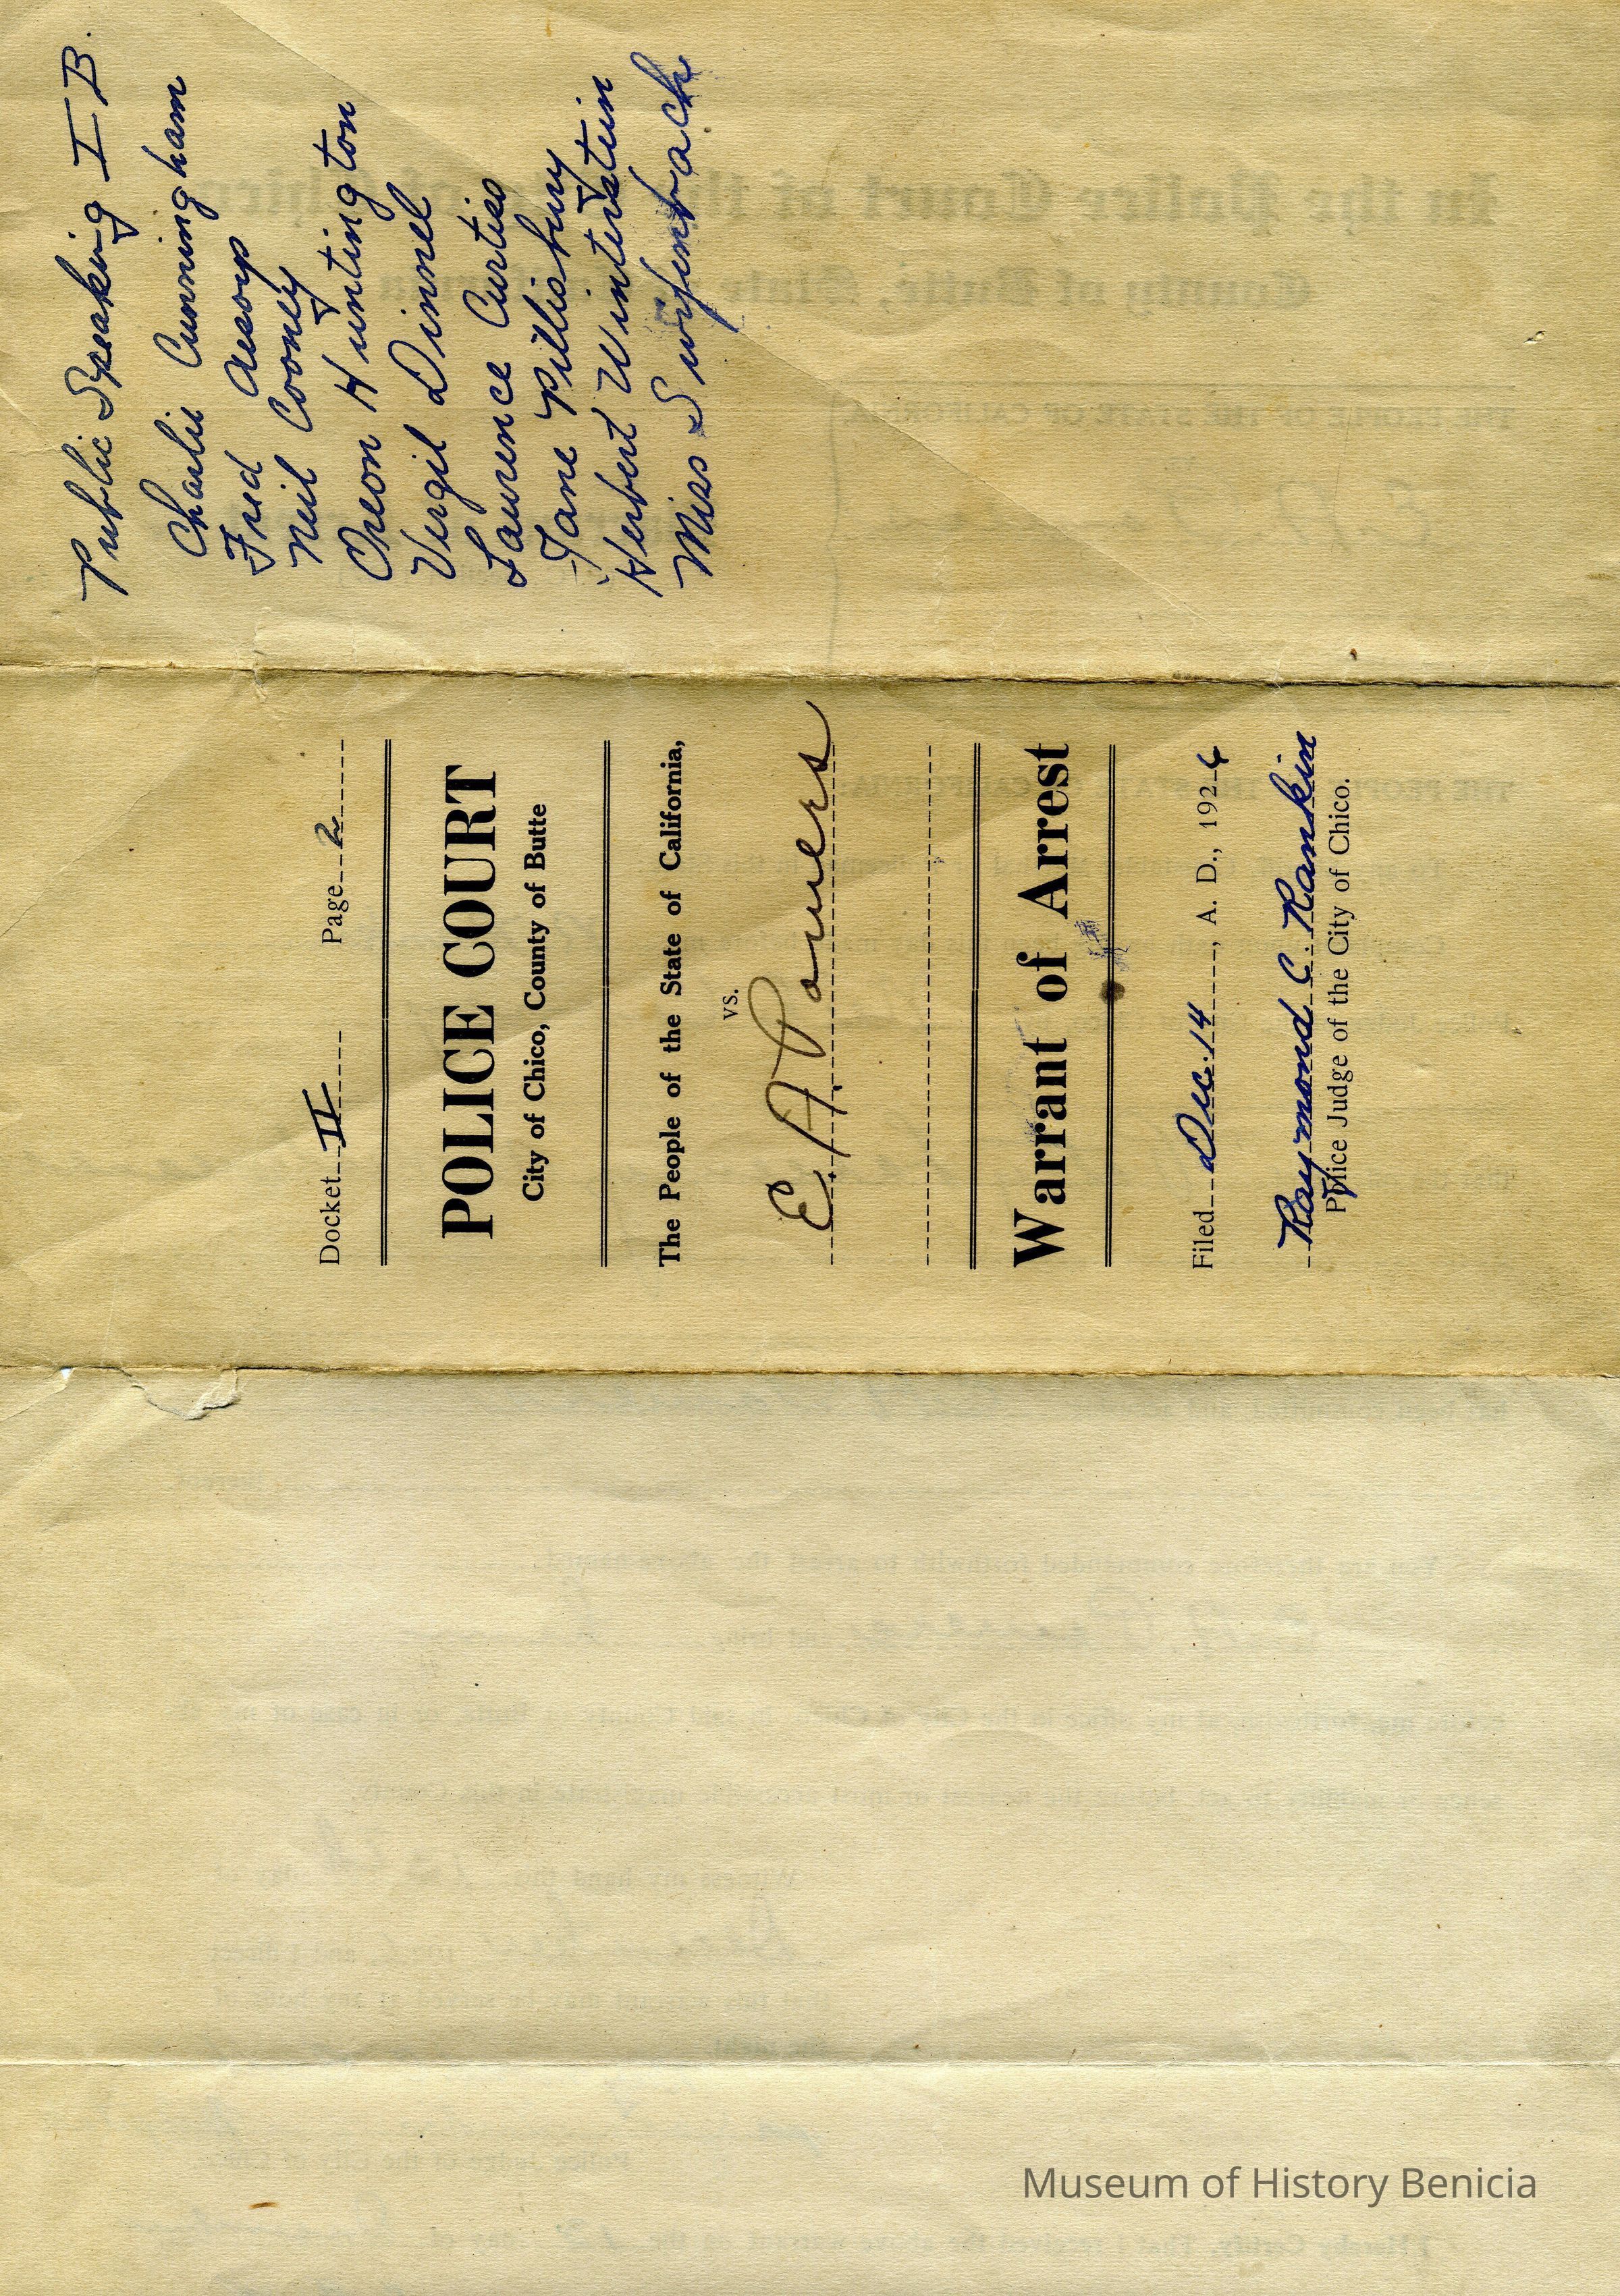 Public Speaking I B.
Charlie Cunningham
Fred Aesoup
Neil Cooney
Oreon Huntington
Vergil Dinnel
Laurence Curtiss
Jane Pillisbury
Herbert Winterstein
Miss Swifenbach
Docket II Page 2
POLICE COURT
City of Chico, County of Butte
The People of the State of California,
vs.
E. A. Powers
Warrant of Arrest
Filed Dec. 14, A. D., 1924
Raymond C. Rankin
Police Judge of the City of Chico.
Museum of History Benicia